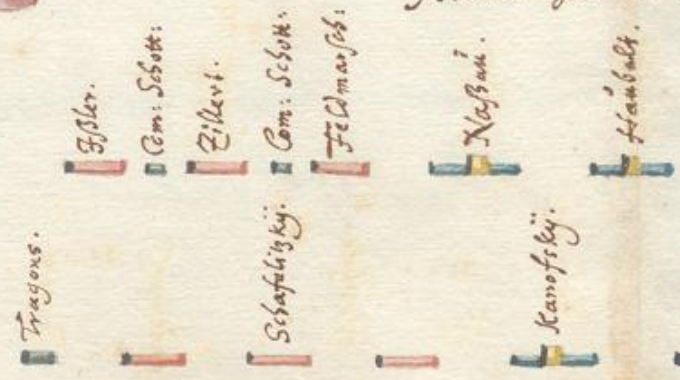 Ißler.
Com: Schott:
Zillert.
Com: Schott:
Feldmarsch:
Naßaŭ.
Haŭbalt.
Tragons.
Schafalitzkÿ.
Kanofskÿ.